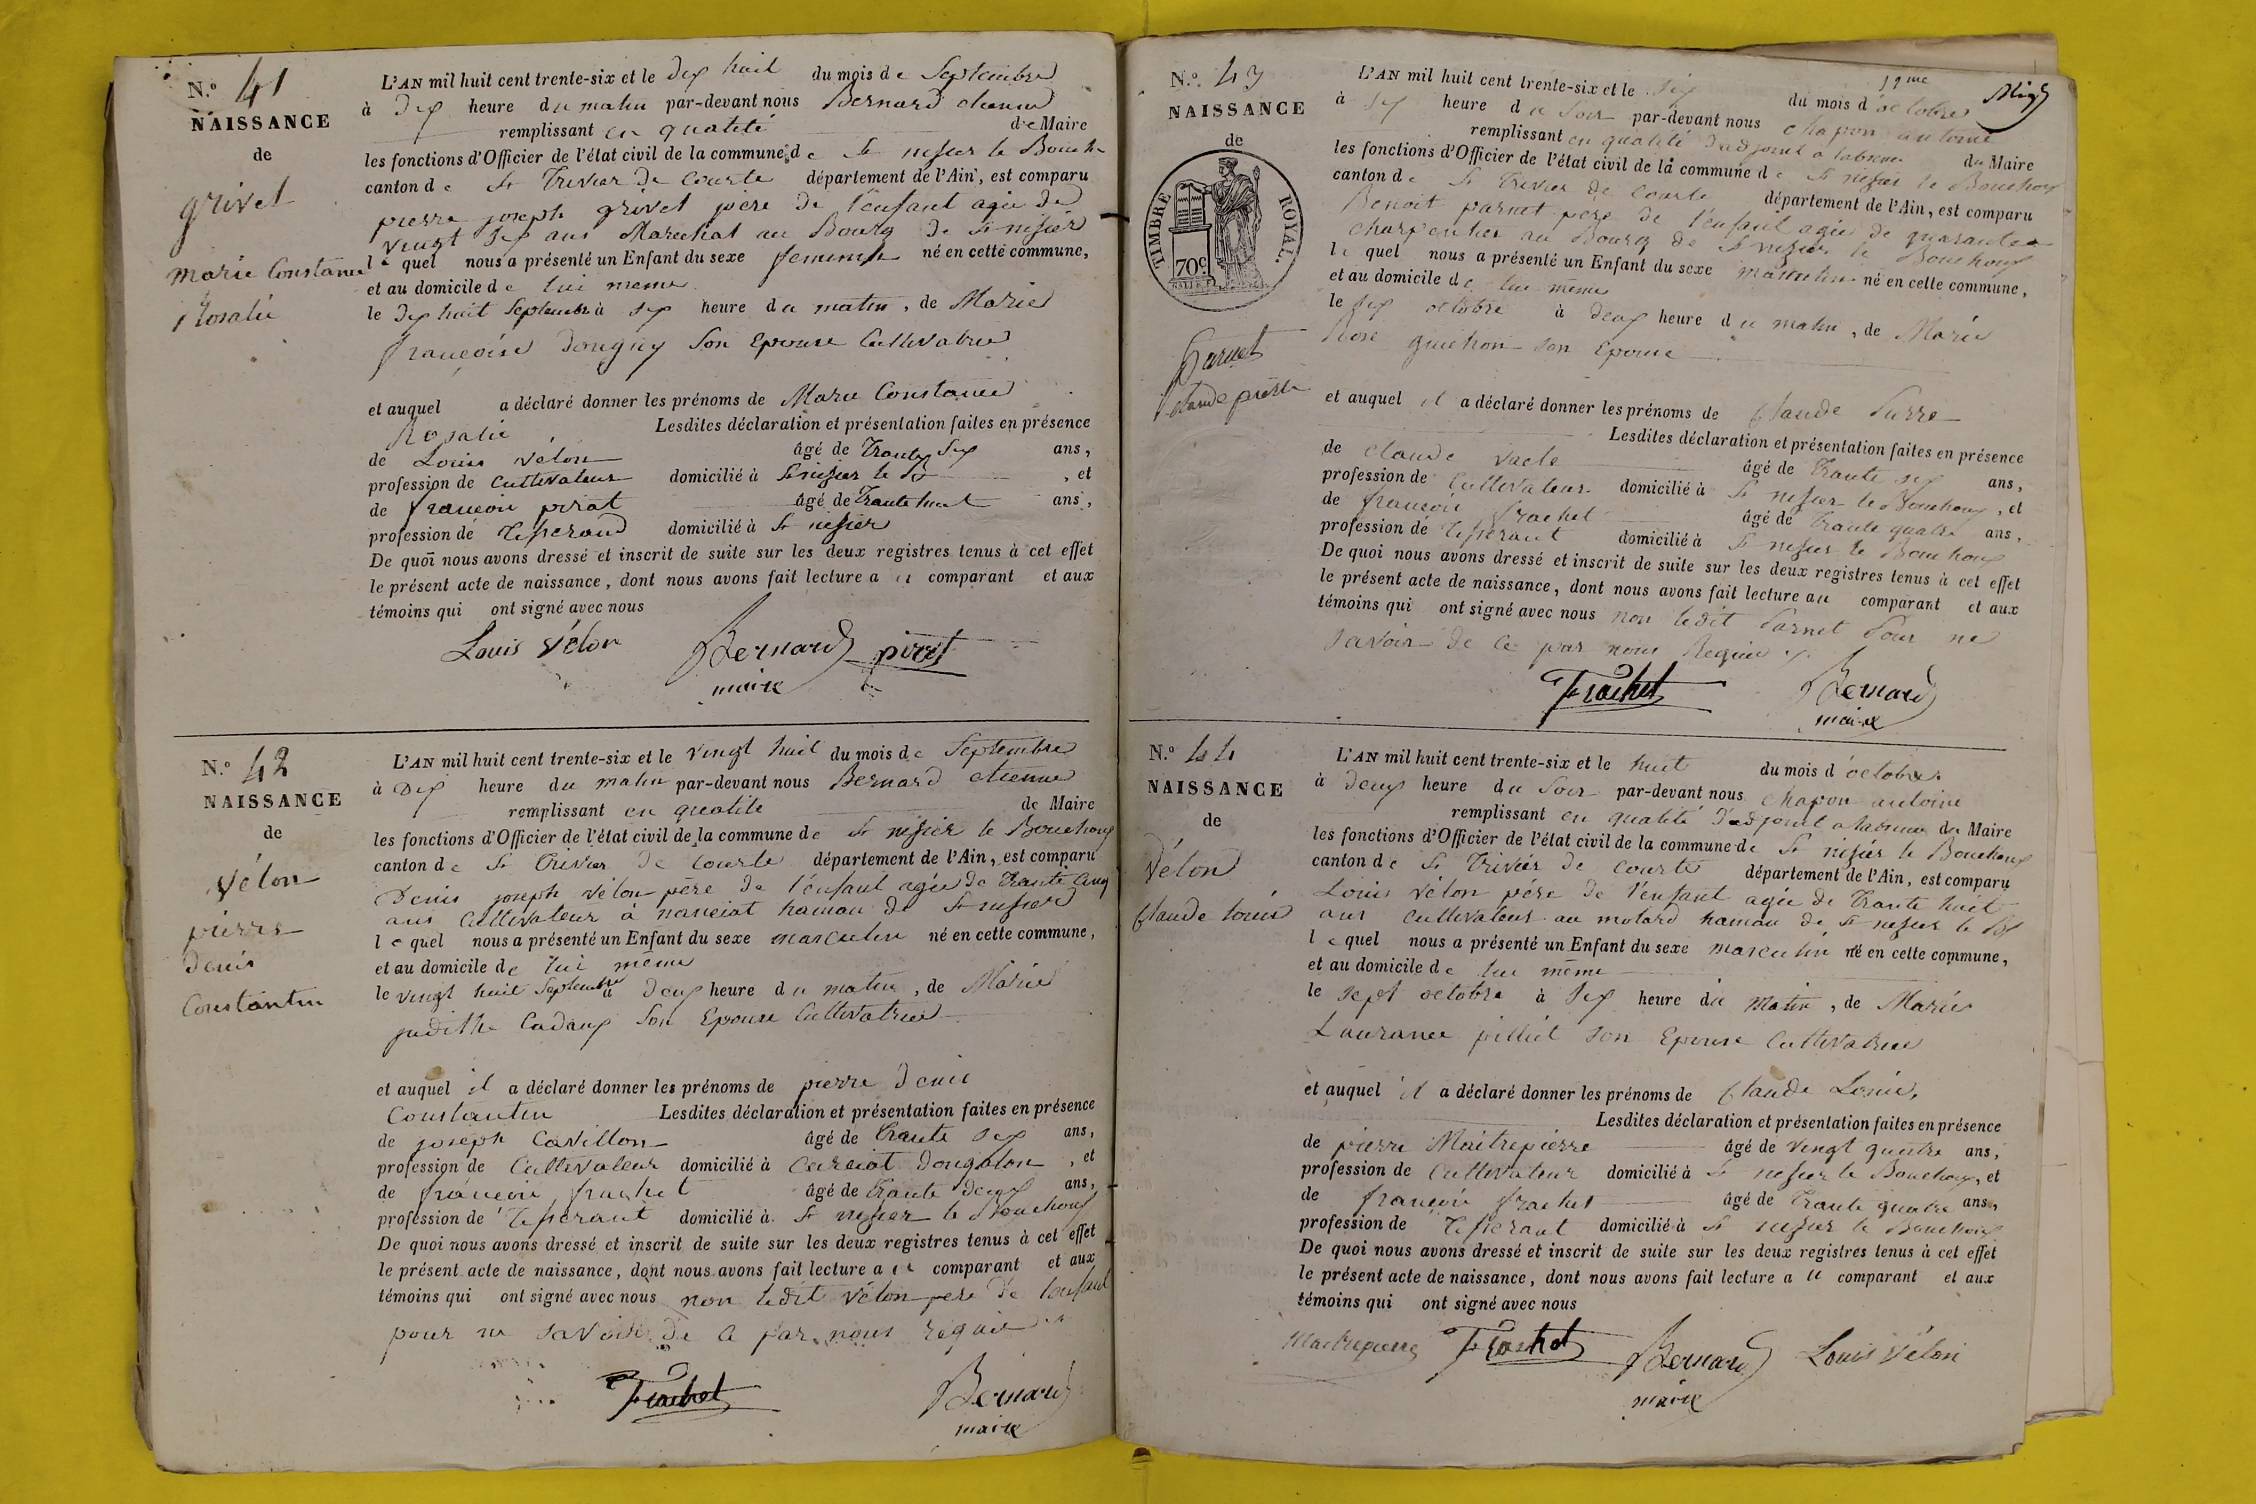 N.° 41
NAISSANCE
de
grivel
marie Constance
Rosalie
L'AN mil huit cent trente-six et le dix huit du mois de Septembre
à dix heure du matin par-devant nous Bernard etienne
remplissant en qualité de Maire
les fonctions d'Officier de l'état civil de la commune de St nisier le Bouch
canton de St Trivier de Courte département de l'Ain, est comparu
pierre joseph grivel père de l'enfant agée de
vingt six ans Marechal au Bourg de St nisier
lequel nous a présenté un Enfant du sexe feminin né en cette commune,
et au domicile de lui meme
le dix huit Septembre à six heure du matin, de Marie
françoise Donguy Son Epouse Cultivatrice
et auquel a déclaré donner les prénoms de Marie Constance
Rosalie Lesdites déclaration et présentation faites en présence
de Louis vélon âgé de Trante Six ans,
profession de Cultivateur domicilié à St nisier le B , et
de françois pirat âgé de Trante huit ans,
profession de Tisserand domicilié à St nisier
De quoi nous avons dressé et inscrit de suite sur les deux registres tenus à cet effet
le présent acte de naissance, dont nous avons fait lecture au comparant et aux
témoins qui ont signé avec nous
Louis Vélon Bernard
maire
N.° 42
NAISSANCE
de
vélon
pierre
denis
Constantin
L'AN mil huit cent trente-six et le vingt huit du mois de Septembre
à Dix heure du matin par-devant nous Bernard etienne
remplissant en qualité de Maire
les fonctions d'Officier de l'état civil de la commune de St nisier le Bouchoux
canton de St Trivier de Courte département de l'Ain, est comparu
Denis joseph vélon père de l'enfant agée de Trante Cinq
ans Cultivateur à nanciat hamau de St nisier
lequel nous a présenté un Enfant du sexe masculin né en cette commune,
et au domicile de lui même
le vingt huit Septembre à Deux heure du matin, de Marie
judithe Cadaux Son Epouse Cultivatrice
et auquel il a déclaré donner les prénoms de pierre Denis
Constantin Lesdites déclaration et présentation faites en présence
de joseph Cavillon âgé de Trante Six ans,
profession de Cultivateur domicilié à Curciat Dongalon , et
de françois frachet âgé de Trante Deux ans,
profession de Tisserant domicilié à St nisier le Bouchoux
De quoi nous avons dressé et inscrit de suite sur les deux registres tenus à cet effet
le présent acte de naissance, dont nous avons fait lecture au comparant et aux
témoins qui ont signé avec nous non ledit vélon pere de l'enfant
pour ne savoir de ce par nous requis
Frachet Bernard
maire
12me
N.° 43
NAISSANCE
de
TIMBRE ROYAL.
70c
Parnet
Claude pierre
L'AN mil huit cent trente-six et le six du mois d'octobre
à six heure du Soir par-devant nous Chapon antoine
remplissant en qualité d'adjoint à labsence du Maire
les fonctions d'Officier de l'état civil de la commune de St nisier le Bouchoux
canton de St Trivier de Courte département de l'Ain, est comparu
Benoit parnet pere de l'enfant agée de quarante
charpentier au Bourg de St nisier le Bouchoux
lequel nous a présenté un Enfant du sexe masculin né en cette commune,
et au domicile de lui même
le six octobre à deux heure du matin, de Marie
Rose guichon son Epouse
et auquel il a déclaré donner les prénoms de Claude Pierre
Lesdites déclaration et présentation faites en présence
de Claude vacle âgé de Trante six ans,
profession de Cultivateur domicilié à St nisier le Bouchoux , et
de françois frachet âgé de Trante quatre ans,
profession de Tisserant domicilié à St nisier le Bouchoux
De quoi nous avons dressé et inscrit de suite sur les deux registres tenus à cet effet
le présent acte de naissance, dont nous avons fait lecture au comparant et aux
témoins qui ont signé avec nous non ledit Parnet Pour ne
savoir de ce par nous Requis
Frachet Bernard
maire
N.° 44
NAISSANCE
de
Vélon
Claude Louis
L'AN mil huit cent trente-six et le huit du mois d'octobre
à deux heure du Soir par-devant nous Chapon antoine
remplissant en qualité d'adjoint à labsence du Maire
les fonctions d'Officier de l'état civil de la commune de St nisier le Bouchoux
canton de St Trivier de Courte département de l'Ain, est comparu
Louis vélon père de l'enfant agée de Trante huit
ans Cultivateur au molard hamau de St nisier le Bx
lequel nous a présenté un Enfant du sexe masculin né en cette commune,
et au domicile de lui même
le sept octobre à six heure du matin, de Marie
Laurance pilliet son Epouse Cultivatrice
et auquel il a déclaré donner les prénoms de Claude Louis,
Lesdites déclaration et présentation faites en présence
de pierre Maitrepierre âgé de vingt quatre ans,
profession de Cultivateur domicilié à St nisier le Bouchoux, et
de françois frachet âgé de Trante quatre ans,
profession de Tisserant domicilié à St nisier le Bouchoux
De quoi nous avons dressé et inscrit de suite sur les deux registres tenus à cet effet
le présent acte de naissance, dont nous avons fait lecture au comparant et aux
témoins qui ont signé avec nous
Maitrepierre Frachet Bernard Louis Vélon
maire